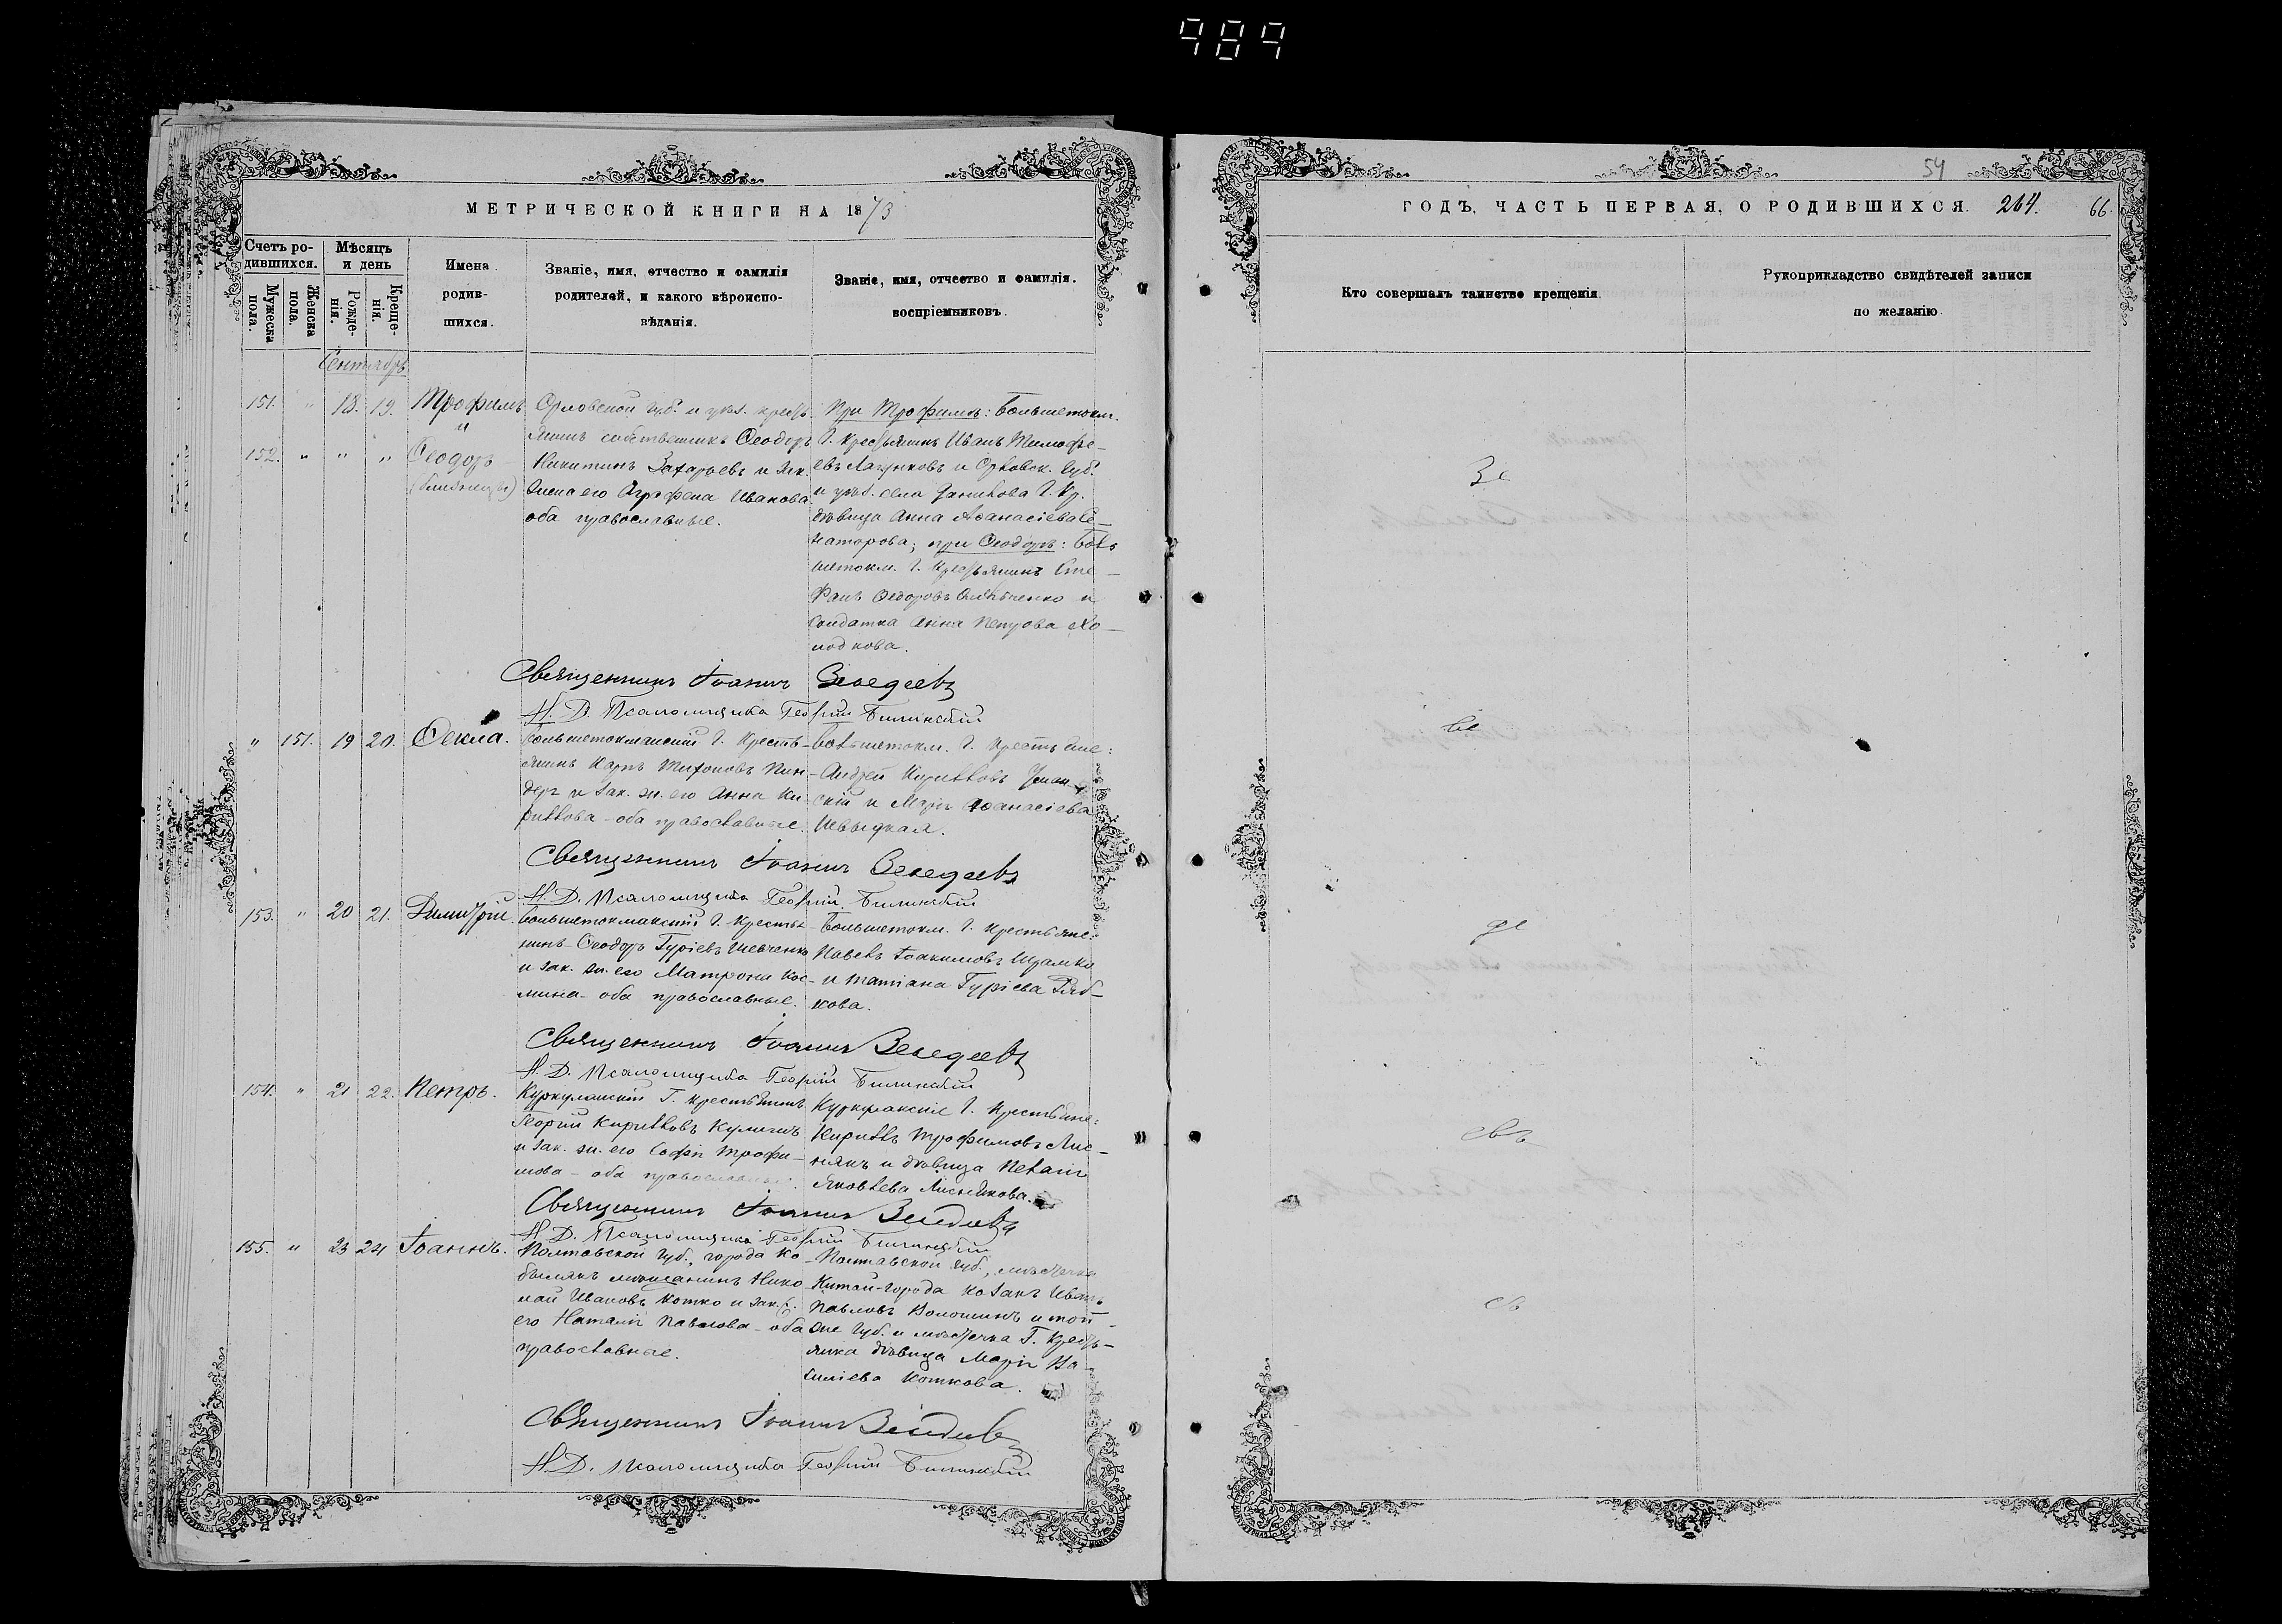 989
МЕТРИЧЕСКОЙ КНИГИ НА 1873
Счетъ ро-
дившихся.
Мѣсяцъ
и день
Мужеска
пола.
Женска
пола.
Рожде-
нія.
Креще-
нія.
Имена
родив-
шихся.
Званіе, имя, отчество и фамилія
родителей, и какого вѣроиспо-
вѣданія.
Званіе, имя, отчество и фамилія.
воспріемниковъ.
Сентябрь
151. " 18. 19. Трофимъ
"
152. " " " Ѳеодоръ
(близнецы)
Орловской губ. и уѣз. кресть-
янинъ собственникъ Ѳеодоръ
Никитинъ Захарьевъ и зак.
жена его Агрофена Иванова
оба православные.
При Трофимѣ: Большетокм.
Г. Крестьянинъ Иванъ Тимофе-
евъ Лагунковъ и Орловск. губ.
и уѣз. села Г. Кр.
дѣвица Анна Аѳанасіева Се-
наторова; при Ѳеодорѣ: Боль
шетокм. Г. Крестьянинъ Сте-
фанъ Ѳедоровъ и
солдатка Анна Петрова Хо-
лодкова.
Священникъ Іоаннъ Зеледеевъ
И. Д. Псаломщика Георгій Билинскій
" 151. 19 20. Ѳекла.
Большетокмакскій Г. Кресть-
янинъ Карпъ Тихоновъ Пин-
деръ и зак. ж. его Анна Ки-
риллова - оба православные.
Большетокм. Г. Крестьяне:
Андрей Кирилловъ Уман-
скій и Марія Аѳанасіева
Швыдкая.
Священникъ Іоаннъ Зеледеевъ
И. Д. Псаломщика Георгій Билинскій
153. " 20 21. Димитрій.
Большетокмакскій Г. Крестья-
нинъ Ѳеодоръ Гуріевъ Шевченко
и зак. ж. его Матрона Кос-
мина - оба православные.
Большетокм. Г. Крестьяне:
Павелъ Іоакимовъ Шрамко
и Татіана Гуріева Ряб-
кова.
Священникъ Іоаннъ Зеледеевъ
И. Д. Псаломщика Георгій Билинскій
154. " 21 22. Петръ.
Куркулакскій Г. Крестьянинъ
Георгій Кирилловъ Куличъ
и зак. ж. его Софія Трофи-
мова - оба православные.
Куркулакскіе Г. Крестьяне:
Кириллъ Трофимовъ Лис-
някъ и дѣвица Пелагія
Яковлева Лиснякова.
Священникъ Іоаннъ Зеледеевъ
И. Д. Псаломщика Георгій Билинскій
155. " 23 24 Іоаннъ.
Полтавской губ., города Ко-
билякъ мѣщанинъ Нико
лай Ивановъ Котко и зак. ж.
его Наталія Павлова - оба
православные.
Полтавской губ., мѣстечка
Китай-города козакъ Иванъ
Павловъ Волошинъ и той-
же губ. и мѣстечка Г. Кресть-
янка дѣвица Марія Ва-
силіева Коткова.
Священникъ Іоаннъ Зеледеевъ
И. Д. Псаломщика Георгій Билинскій
54
ГОДЪ, ЧАСТЬ ПЕРВАЯ, О РОДИВШИХСЯ. 264. 66.
Кто совершалъ таинство крещенія.
Рукоприкладство свидѣтелей записи
по желанію.